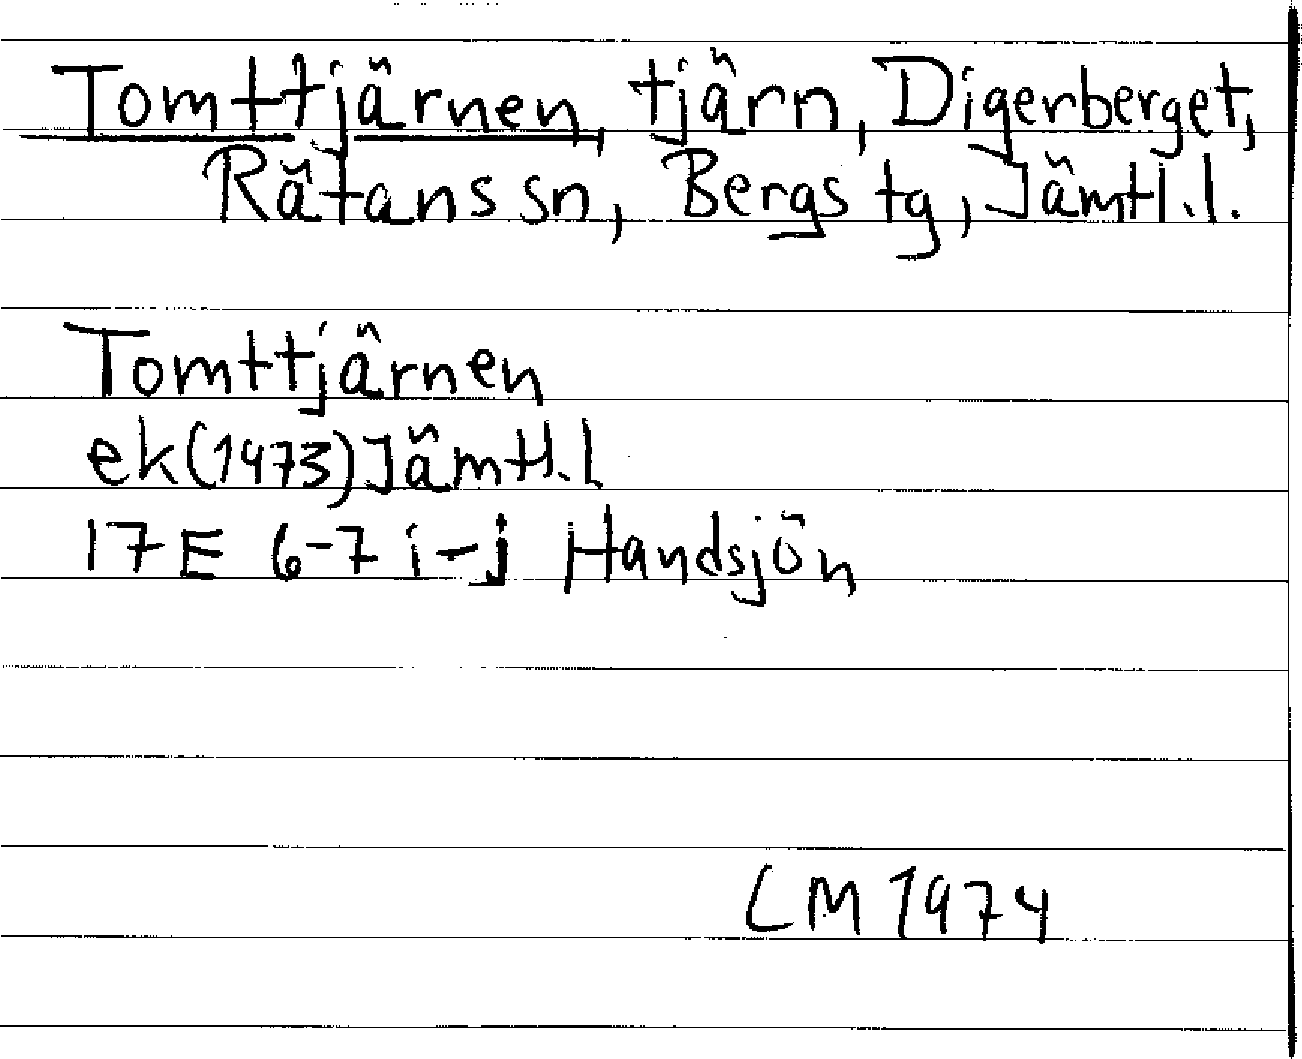 Tomttjärnen, tjärn, Digerberget,
Rätans sn, Bergs tg, Jämtl.l.
Tomttjärnen
ek(1973)Jämtl.l
17E 6-7 i-j Handsjön
LM 1974